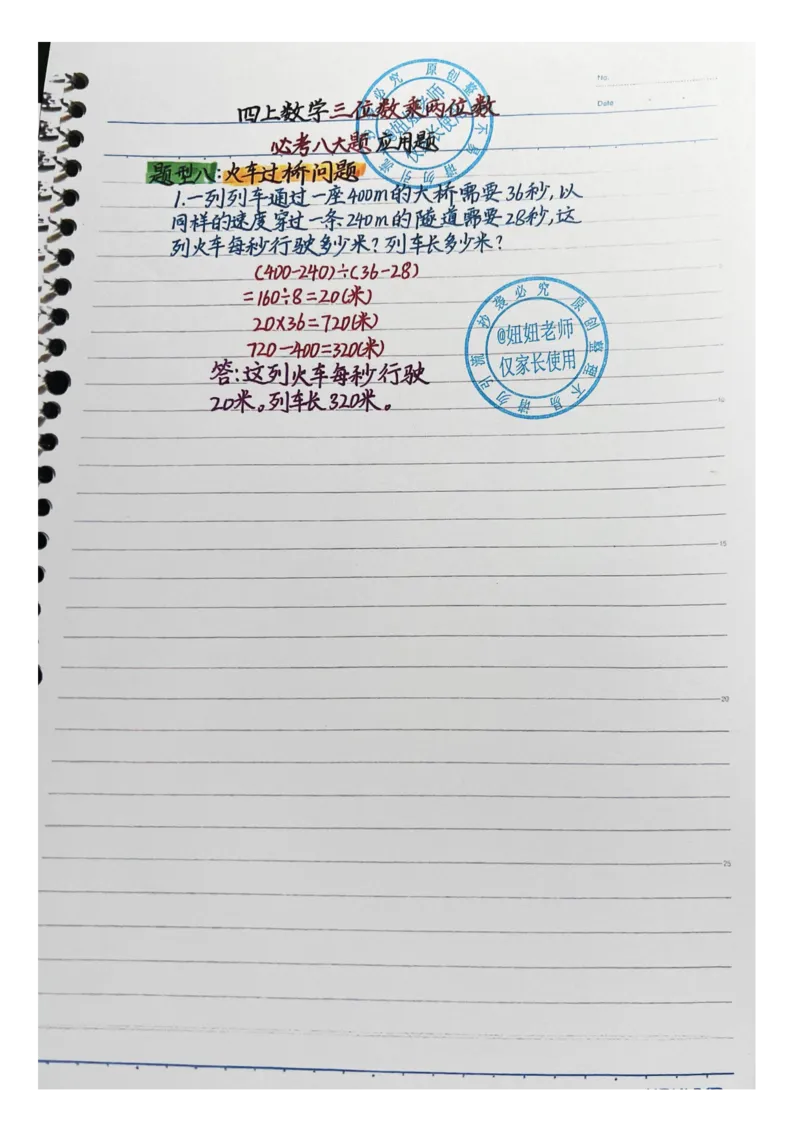 No.
Date
四上数学三位数乘两位数
必考八大题 应用题
题型八:火车过桥问题
1.一列列车通过一座400m的大桥需要36秒,以
同样的速度穿过一条240m的隧道需要28秒,这
列火车每秒行驶多少米?列车长多少米?
(400-240)÷(36-28)
=160÷8=20(米)
20×36=720(米)
720-400=320(米)
答:这列火车每秒行驶
20米。列车长320米。
@妞妞老师
仅家长使用
原创整理不易请勿引流抄袭必究
10
15
20
25